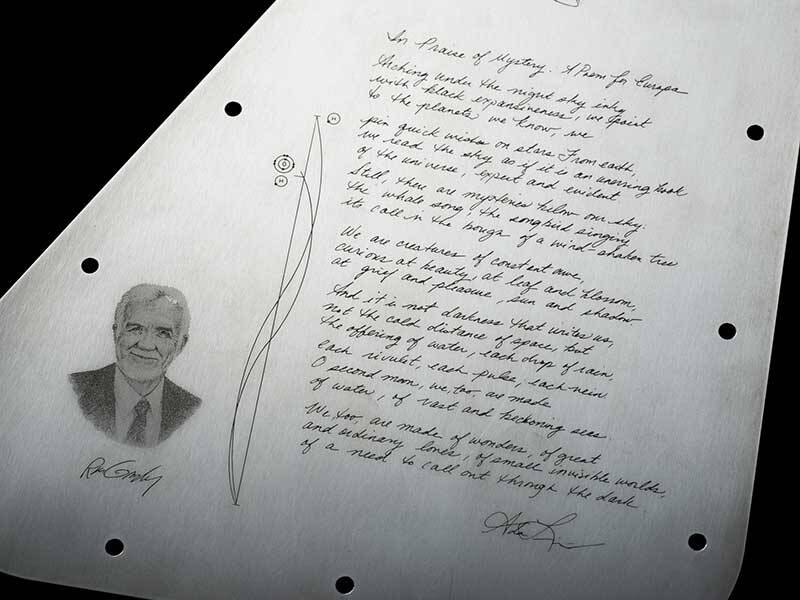 In Praise of Mystery: A Poem for Europa
Arching under the night sky inky
with black expansiveness, we point
to the planets we know, we
pin quick wishes on stars. From earth,
we read the sky as if it is an unerring book
of the universe, expert and evident.
Still, there are mysteries below our sky:
the whale song, the songbird singing
its call in the bough of a wind-shaken tree.
We are creatures of constant awe,
curious at beauty, at leaf and blossom,
at grief and pleasure, sun and shadow.
And it is not darkness that unites us,
not the cold distance of space, but
the offering of water, each drop of rain,
each rivulet, each pulse, each vein.
O second moon, we, too, are made
of water, of vast and beckoning seas.
We, too, are made of wonders, of great
and ordinary loves, of small invisible worlds,
of a need to call out through the dark.
Ada
H
O
H
Ron